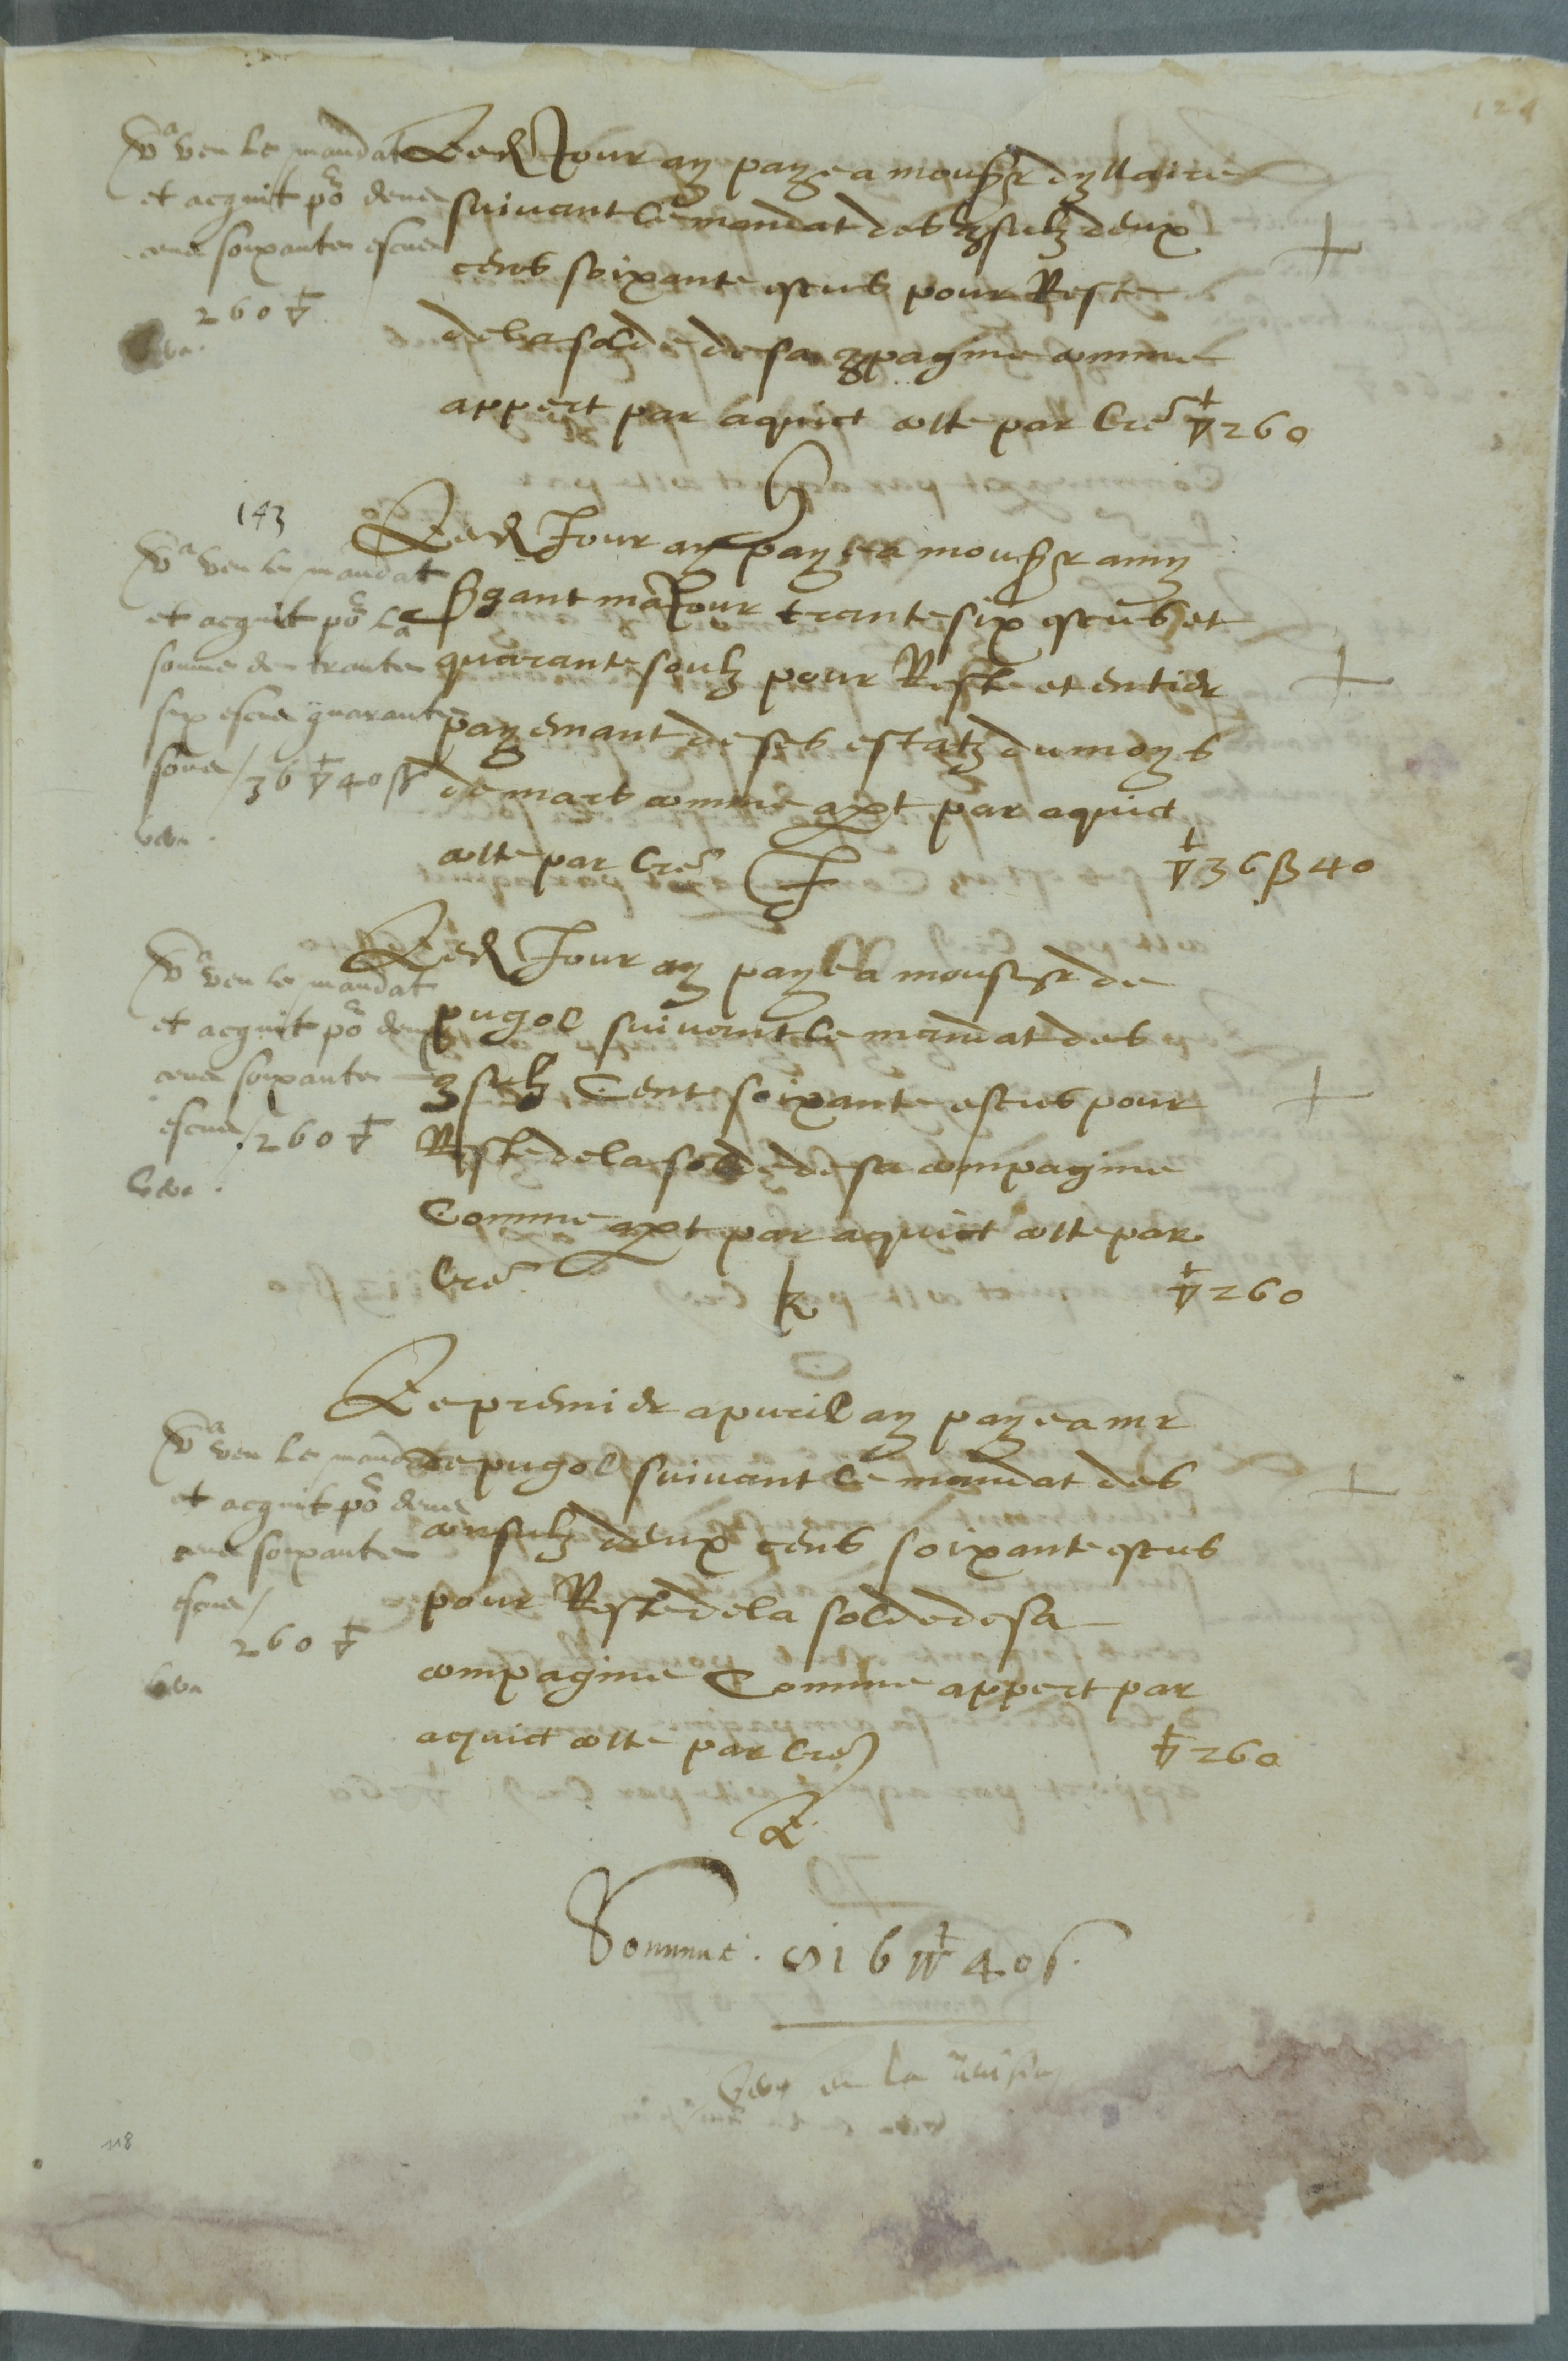 124
Va veu le mandat
et acquit po deux
cens soixante escus
260 ▽
veu.
Led Jour ay paye a monsr dyllaire
suivant le mandat des 9sulz deux
cens soixante escus pour Reste
de la solde de sa 9pagnie comme
appert par aquict cotte par lre ▽ 260
H
143
Va veu le mandat
et acquit po la
somme de trante
six escus quarante
souz / 36 ▽ 40 ss
veu.
Led Jour ay paye a monsr amy
sgant maJour trante six escus et
quarante soulz pour Reste et entier
payemant de ses estatz du moys
de mars comme apt par aquict
cotte par lre J ▽ 36 ß 40
Va veu le mandat
et acquit po deux
cens soixante
escus / 260 ▽
veu.
Led Jour ay paye a monsr de
pugol suivant le mandat des
9sulz Cent soixante escus pour
Reste de la solde de sa compagnie
Comme apt par aquict cotte par
lre K ▽ 260
Va veu le mandat
et acquit po deux
cens soixante
escus /
260 ▽
veu
Le premier apvril ay paye a mr
de pugol suivant le mandat des
consulz deux cens soixante escus
pour Reste de la solde de sa
compagnie Comme appert par
acquict cotte par lre ▽ 260
L
Somme. 816 ▽ 40 s.
118